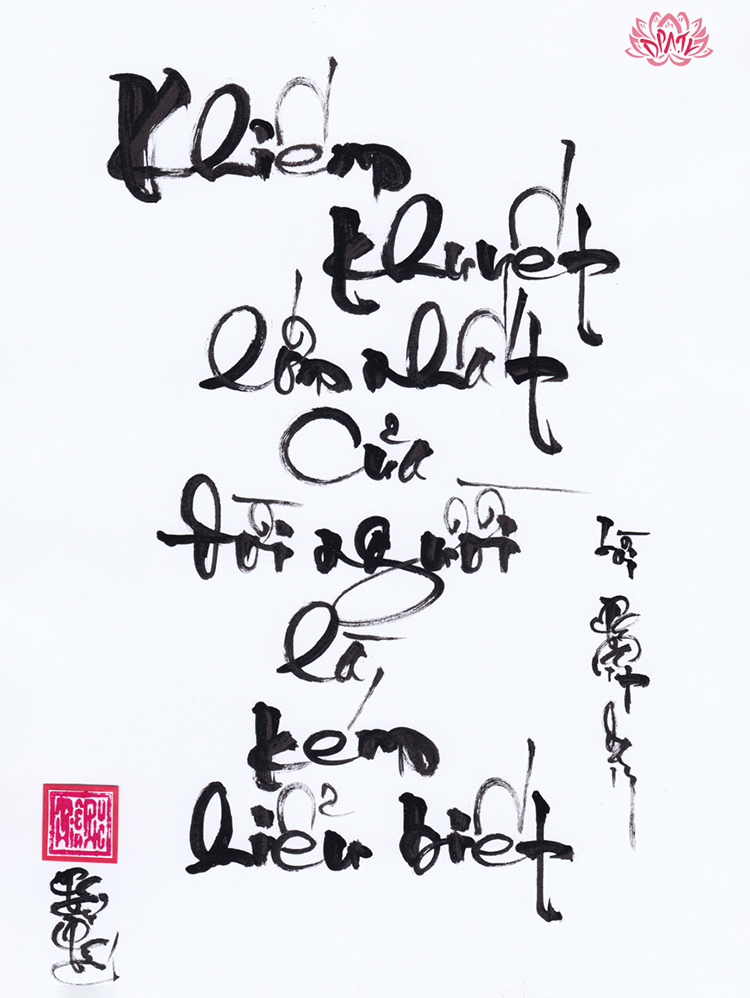 Khiếm
khuyết
lớn nhất
của
đời người
là
kém
hiểu biết
Lời
Phật